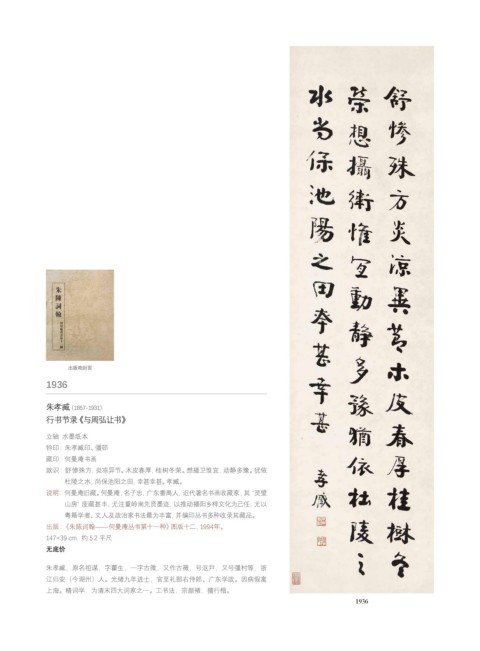 朱陳詞翰
出版物封面
1936
朱孝臧 (1857-1931)
行书节录《与周弘让书》
立轴 水墨纸本
钤印:朱孝臧印、彊邨
藏印:何曼庵书画
款识:舒惨殊方,炎凉异节。木皮春厚,桂树冬荣。想摄卫惟宜,动静多豫。犹依
杜陵之水,尚保池阳之田,幸甚幸甚。孝臧。
说明:何曼庵旧藏。何曼庵,名子忠,广东番禺人,近代著名书画收藏家,其“灵璧
山房”庋藏甚丰,尤注重岭南先贤墨迹,以推动播阳乡梓文化为己任,尤以
粤籍学者、文人及政治家书法最为丰富,并编印丛书多种收录其藏品。
出版:《朱陈词翰——何曼庵丛书第十一种》图版十二,1994年。
147×39 cm 约5.2平尺
无底价
朱孝臧,原名祖谋,字藿生,一字古微,又作古薇,号沤尹,又号彊村等,浙
江归安(今湖州)人。光绪九年进士,官至礼部右侍郎,广东学政。因病假寓
上海。精词学,为清末四大词家之一。工书法,宗颜褚,擅行楷。
舒慘殊方炎涼異節木皮春厚桂樹冬
榮想攝衛惟宜動静多豫猶依杜陵之
水尚保池陽之田幸甚幸甚
孝臧
1936